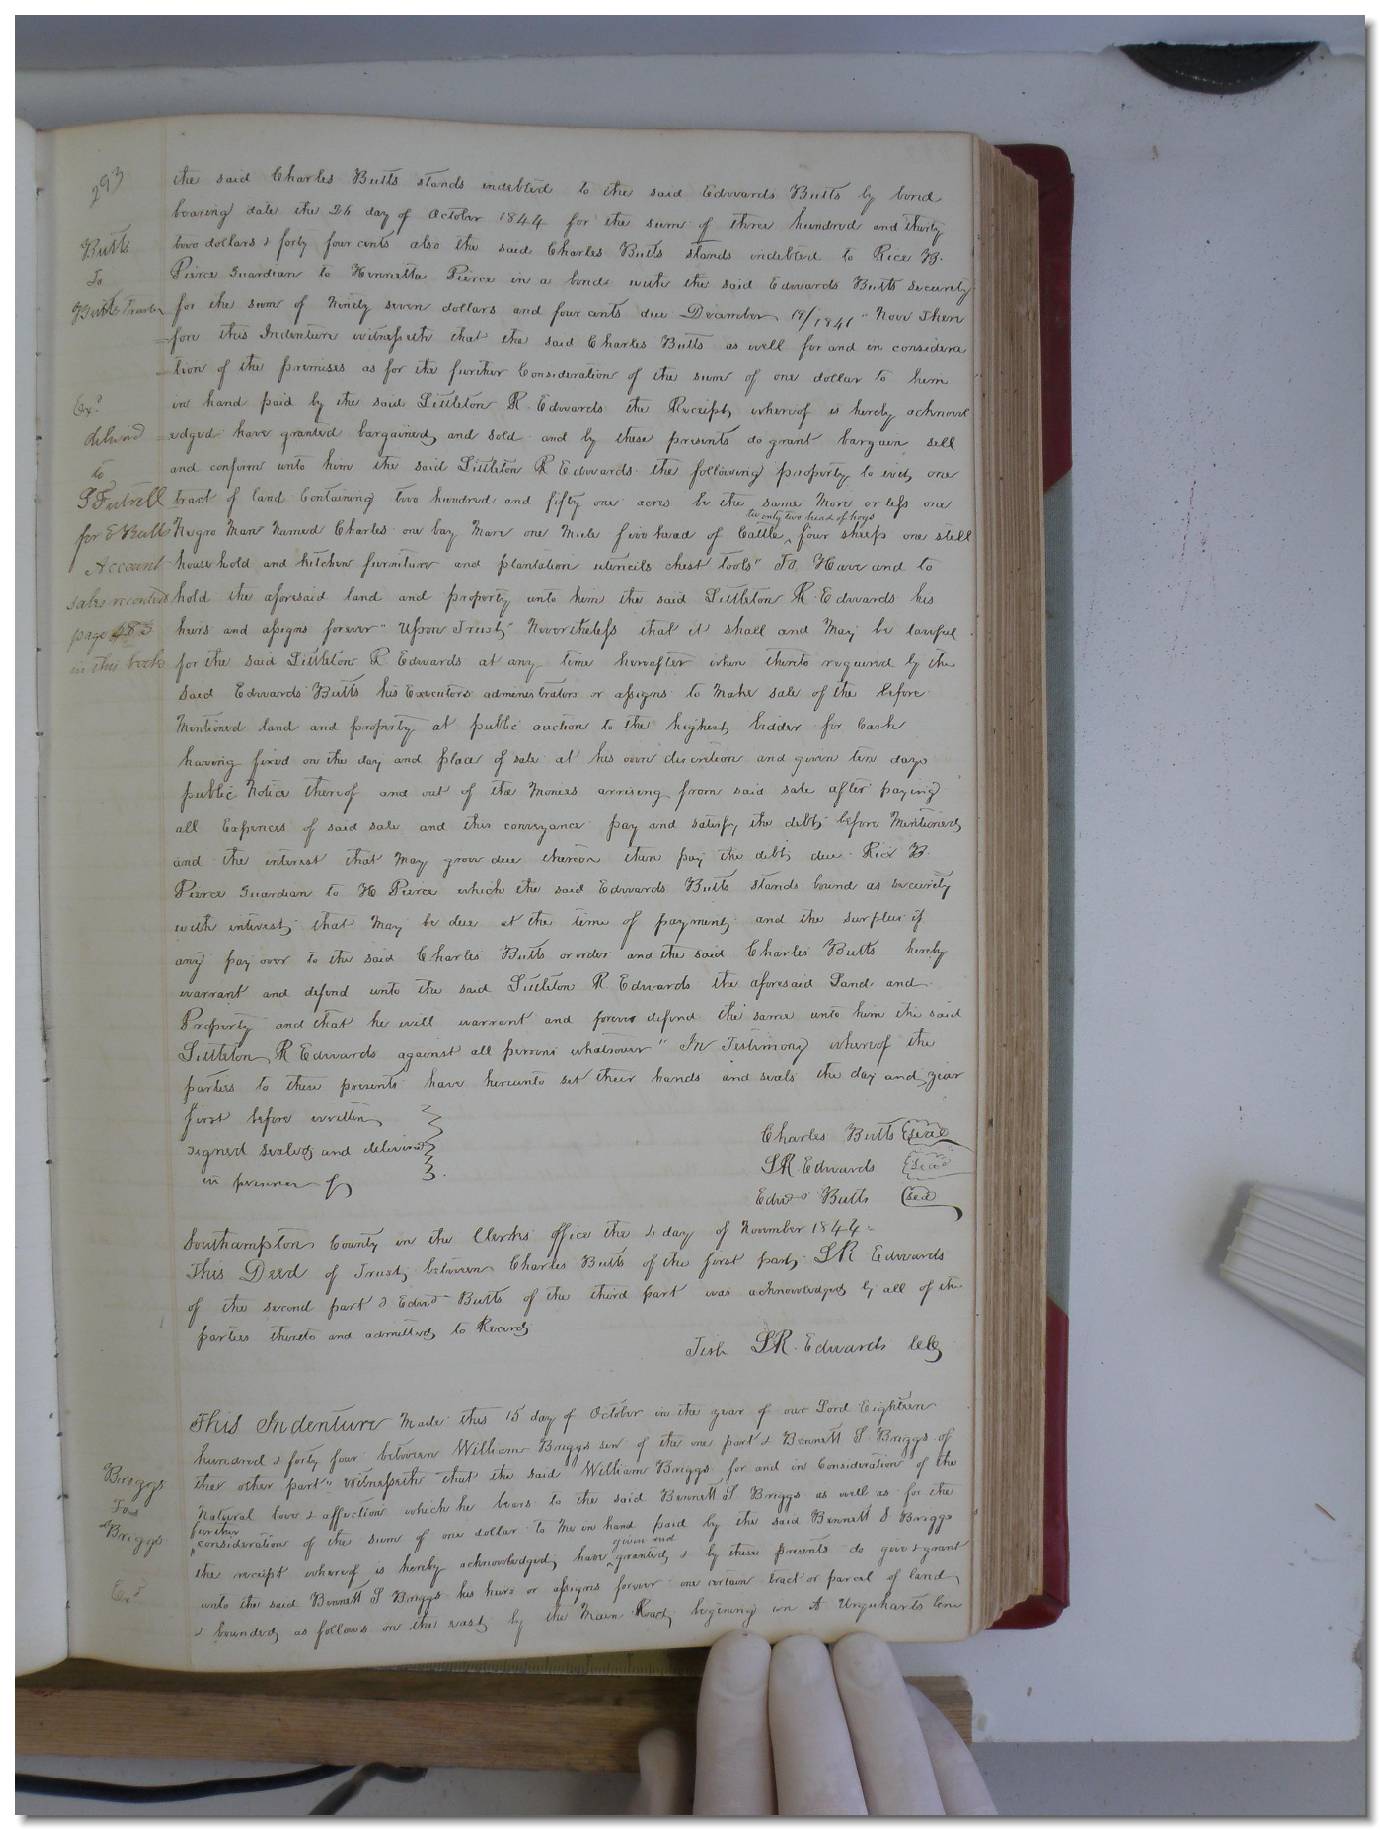 293
the said Charles Butts stands indebted to the said Edwards Butts by bond
bearing date the 26 day of October 1844 for the sum of three hundred and thirty
two dollars & forty four cents also the said Charles Butts stands indebted to Rice B.
Pierce Guardian to Henrietta Pierce in a bond with the said Edwards Butts security
for the sum of Ninety seven dollars and four cents due December 19/1841 " Now There
fore this Indenture witnesseth that the said Charles Butts as well for and in considera
tion of the premises as for the further Consideration of the sum of one dollar to him
in hand paid by the said Littleton R. Edwards the Receipt whereof is hereby acknowl
edged have granted bargained and sold and by these presents do grant bargain sell
and conform unto him the said Littleton R Edwards the following property to wit, one
tract of land Containing two hundred and fifty one acres be the same More or less one
twenty two head of hogs
Negro Man Named Charles one bay Mare one Mule five head of Cattle ^ four sheep one still
household and kitchen furniture and plantation utencils chest tools" To Have and to
hold the aforesaid land and property unto him the said Littleton R. Edwards his
heirs and assigns forever" Upon Trust Nevertheless that it shall and May be lawful
for the said Littleton R Edwards at any time hereafter when thereto required by the
said Edwards Butts his Executors administrators or assigns to Make sale of the before
Mentioned land and property at public auction to the highest bidder for Cash
having fixed on the day and place of sale at his own discretion and given ten days
public Notice thereof and out of the Monies arrising from said sale after paying
all Expences of said sale and this conveyance pay and satisfy the debt before Mentioned
and the interest that May grow due thereon then pay the debt due Rice B.
Pierce Guardian to H Pierce which the said Edwards Butts stands bound as security
with interest that May be due at the time of payment and the surplus if
any pay over to the said Charles Butts or order and the said Charles Butts hereby
warrant and defend unto the said Littleton R Edwards the aforesaid Land and
Property and that he will warrant and forever defend the same unto him the said
Littleton R Edwards against all persons whatsoever" In Testimony whereof the
parties to these presents have hereunto set their hands and seals the day and year
first before written
signed sealed and delivered
in presence of
Charles Butts seal
LR. Edwards seal
Edwds Butts seal
Butts
To
Butts Trustee
Exd
delivered
to
for E Butts
Account
sales recorded
page 483
in this book
Southampton County in the Clerks office the 4 day of November 1844
This Deed of Trust between Charles Butts of the first part, LR Edwards
of the second part & Edwds Butts of the third part was acknowledged by all of the
parties thereto and admitted to Record
Test LR. Edwards
This Indenture Made this 15 day of October in the year of our Lord Eighteen
hundred & forty four between William Briggs sen of the one part & Bennett S Briggs of
the other part" witnesseth that the said William Briggs for and in Consideration of the
Natural love & affection which he bears to the said Bennett S Briggs as well as for the
further
consideration of the sum of one dollar to Me in hand paid by the said Bennett S Briggs
given and
the receipt whereof is hereby acknowledged, have ^ granted & by these presents do give & grant
unto the said Bennett S Briggs his heirs or assigns forever one certain tract or parcel of land
& bounded as follows on the east by the Main Road, begining in A Urquharts line
Briggs
To
Briggs
Exd